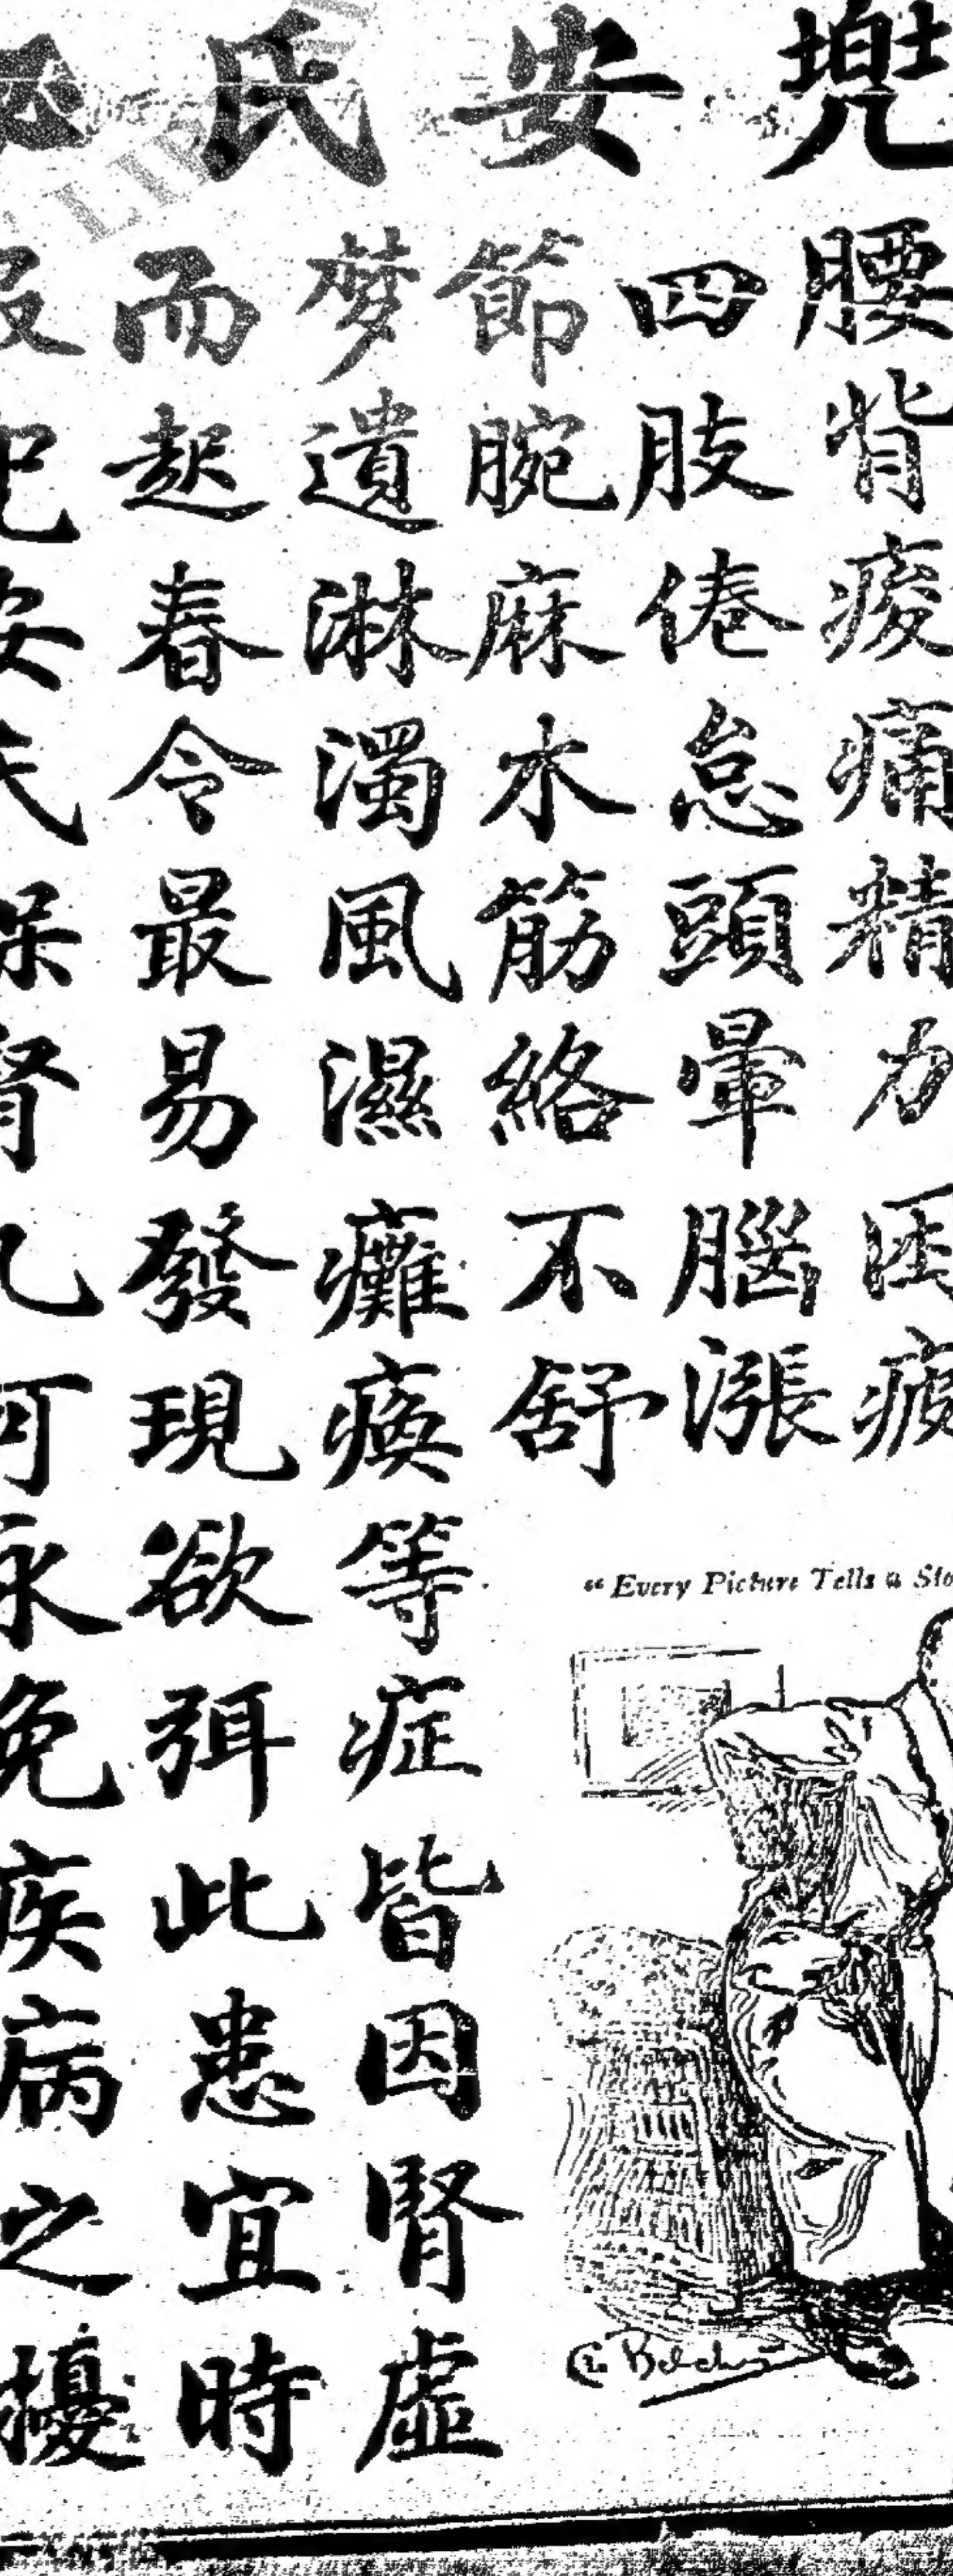 兜安氏
腰背痠痛精力困疲
四肢倦怠頭暈腦漲
節腕麻木筋絡不舒
夢遺淋濁風濕癱瘓等症皆因腎虛
而起春令最易發現欲弭此患宜時
服兜安氏保腎丸可永免疾病之擾
"Every Picture Tells a Sto